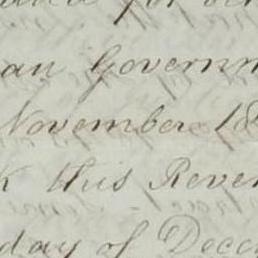 for
an Governm
November 18
k this Reven
day of Dece